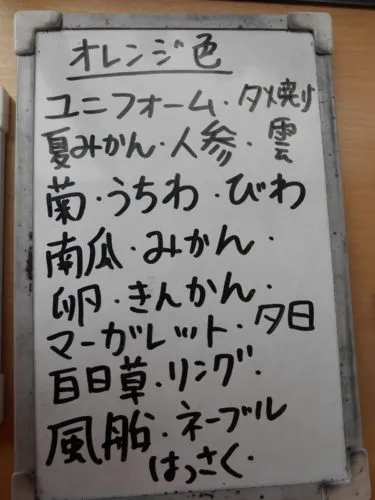 オレンジ色
ユニフォーム・夕焼け
夏みかん・人参・雲
菊・うちわ・びわ
南瓜・みかん・
卵・きんかん・
マーガレット・夕日
百日草・リング・
風船・ネーブル
はっさく・